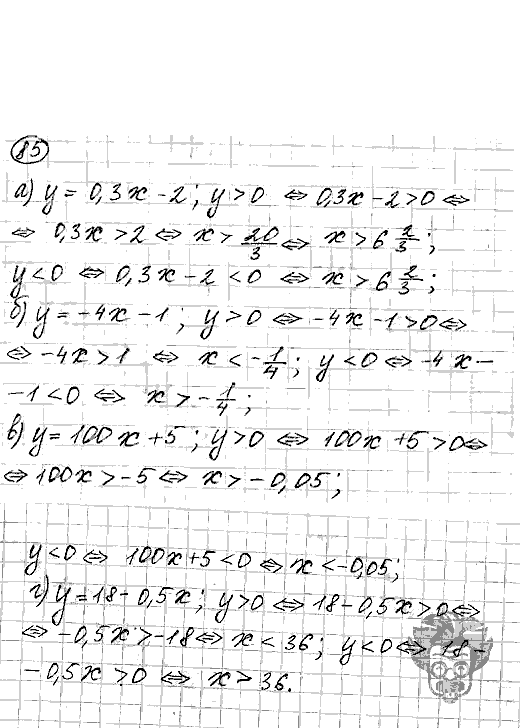 85
а) y = 0,3x - 2; y > 0 ⇔ 0,3x - 2 > 0 ⇔
⇔ 0,3x > 2 ⇔ x > 20/3 ⇔ x > 6 2/3;
y < 0 ⇔ 0,3x - 2 < 0 ⇔ x > 6 2/3;
б) y = -4x - 1; y > 0 ⇔ -4x - 1 > 0 ⇔
⇔ -4x > 1 ⇔ x < -1/4; y < 0 ⇔ -4x -
-1 < 0 ⇔ x > -1/4;
в) y = 100x + 5; y > 0 ⇔ 100x + 5 > 0 ⇔
⇔ 100x > -5 ⇔ x > -0,05;
y < 0 ⇔ 100x + 5 < 0 ⇔ x < -0,05;
г) y = 18 - 0,5x; y > 0 ⇔ 18 - 0,5x > 0 ⇔
⇔ -0,5x > -18 ⇔ x < 36; y < 0 ⇔ 18 -
-0,5x > 0 ⇔ x > 36.